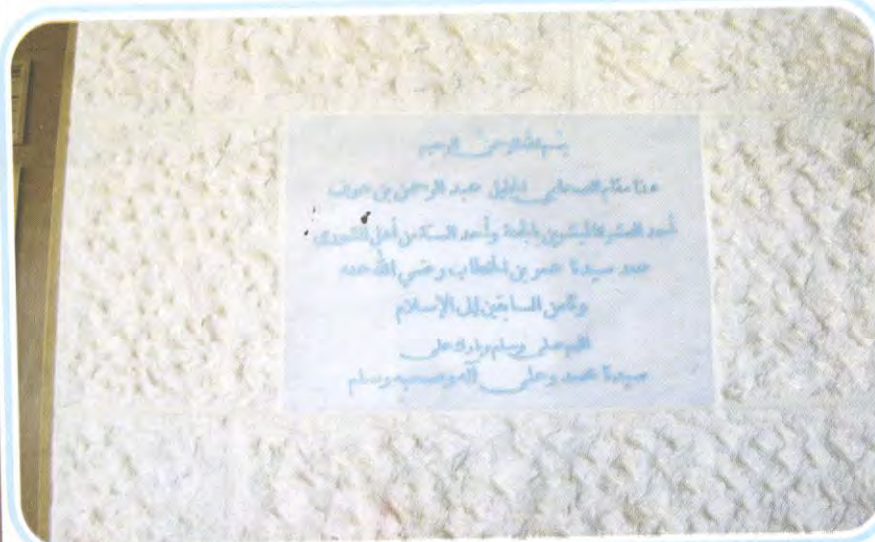 بسم الله الرحمن الرحيم
هذا مقام الصحابي الجليل عبد الرحمن بن عوف
أحد العشرة المبشرين بالجنة وأحد الستة من أهل الشورى
عند سيدنا عمر بن الخطاب رضي الله عنه
وثامن السابقين إلى الإسلام
اللهم صلى وسلم وبارك على
سيدنا محمد وعلى آله وصحبه وسلم